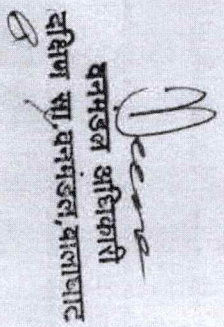 वनमंडल अधिकारी
दक्षिण सा. वनमंडल, बालाघाट